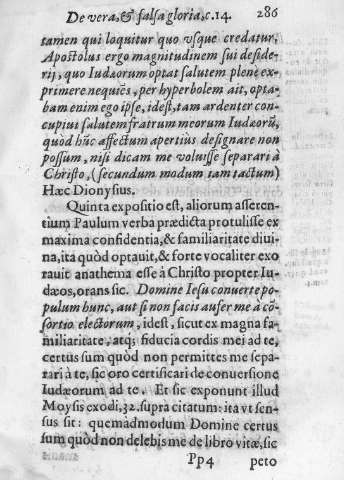 De vera, & falsa gloria, c. 14. 286
tamen qui loquitur quo vsque credatur.
Apostolus ergo magnitudinem sui deside-
rij, quo Iudæorum optat salutem plenè ex-
primere nequiēs, per hyperbolem ait, opta-
bam enim ego ipse, idest, tam ardenter con-
cupiui salutem fratrum meorum Iudæorũ,
quòd hũc affectum apertiùs designare non
possum, nisi dicam me voluisse separari à
Christo, (secundum modum tam tactum)
Hæc Dionysius.
Quinta expositio est, aliorum asseren-
tium Paulum verba prædicta protulisse ex
maxima confidentia, & familiaritate diui-
na, ita quòd optauit, & forte vocaliter exo
rauit anathema esse à Christo propter Iu-
dæos, orans sic. Domine Iesu conuerte po-
pulum hunc, aut si non facis aufer me à cõ-
sortio electorum, idest, sicut ex magna fa-
miliaritate, atq; fiducia cordis mei ad te,
certus sum quòd non permittes me sepa-
rari à te, sic oro certificari de conuersione
Iudæorum ad te. Et sic exponunt illud
Moysis exodi, 32. supra citatum: ita vt sen-
sus sit: quemadmodum Domine certus
sum quòd non delebis me de libro vitæ, sic
Pp4 peto